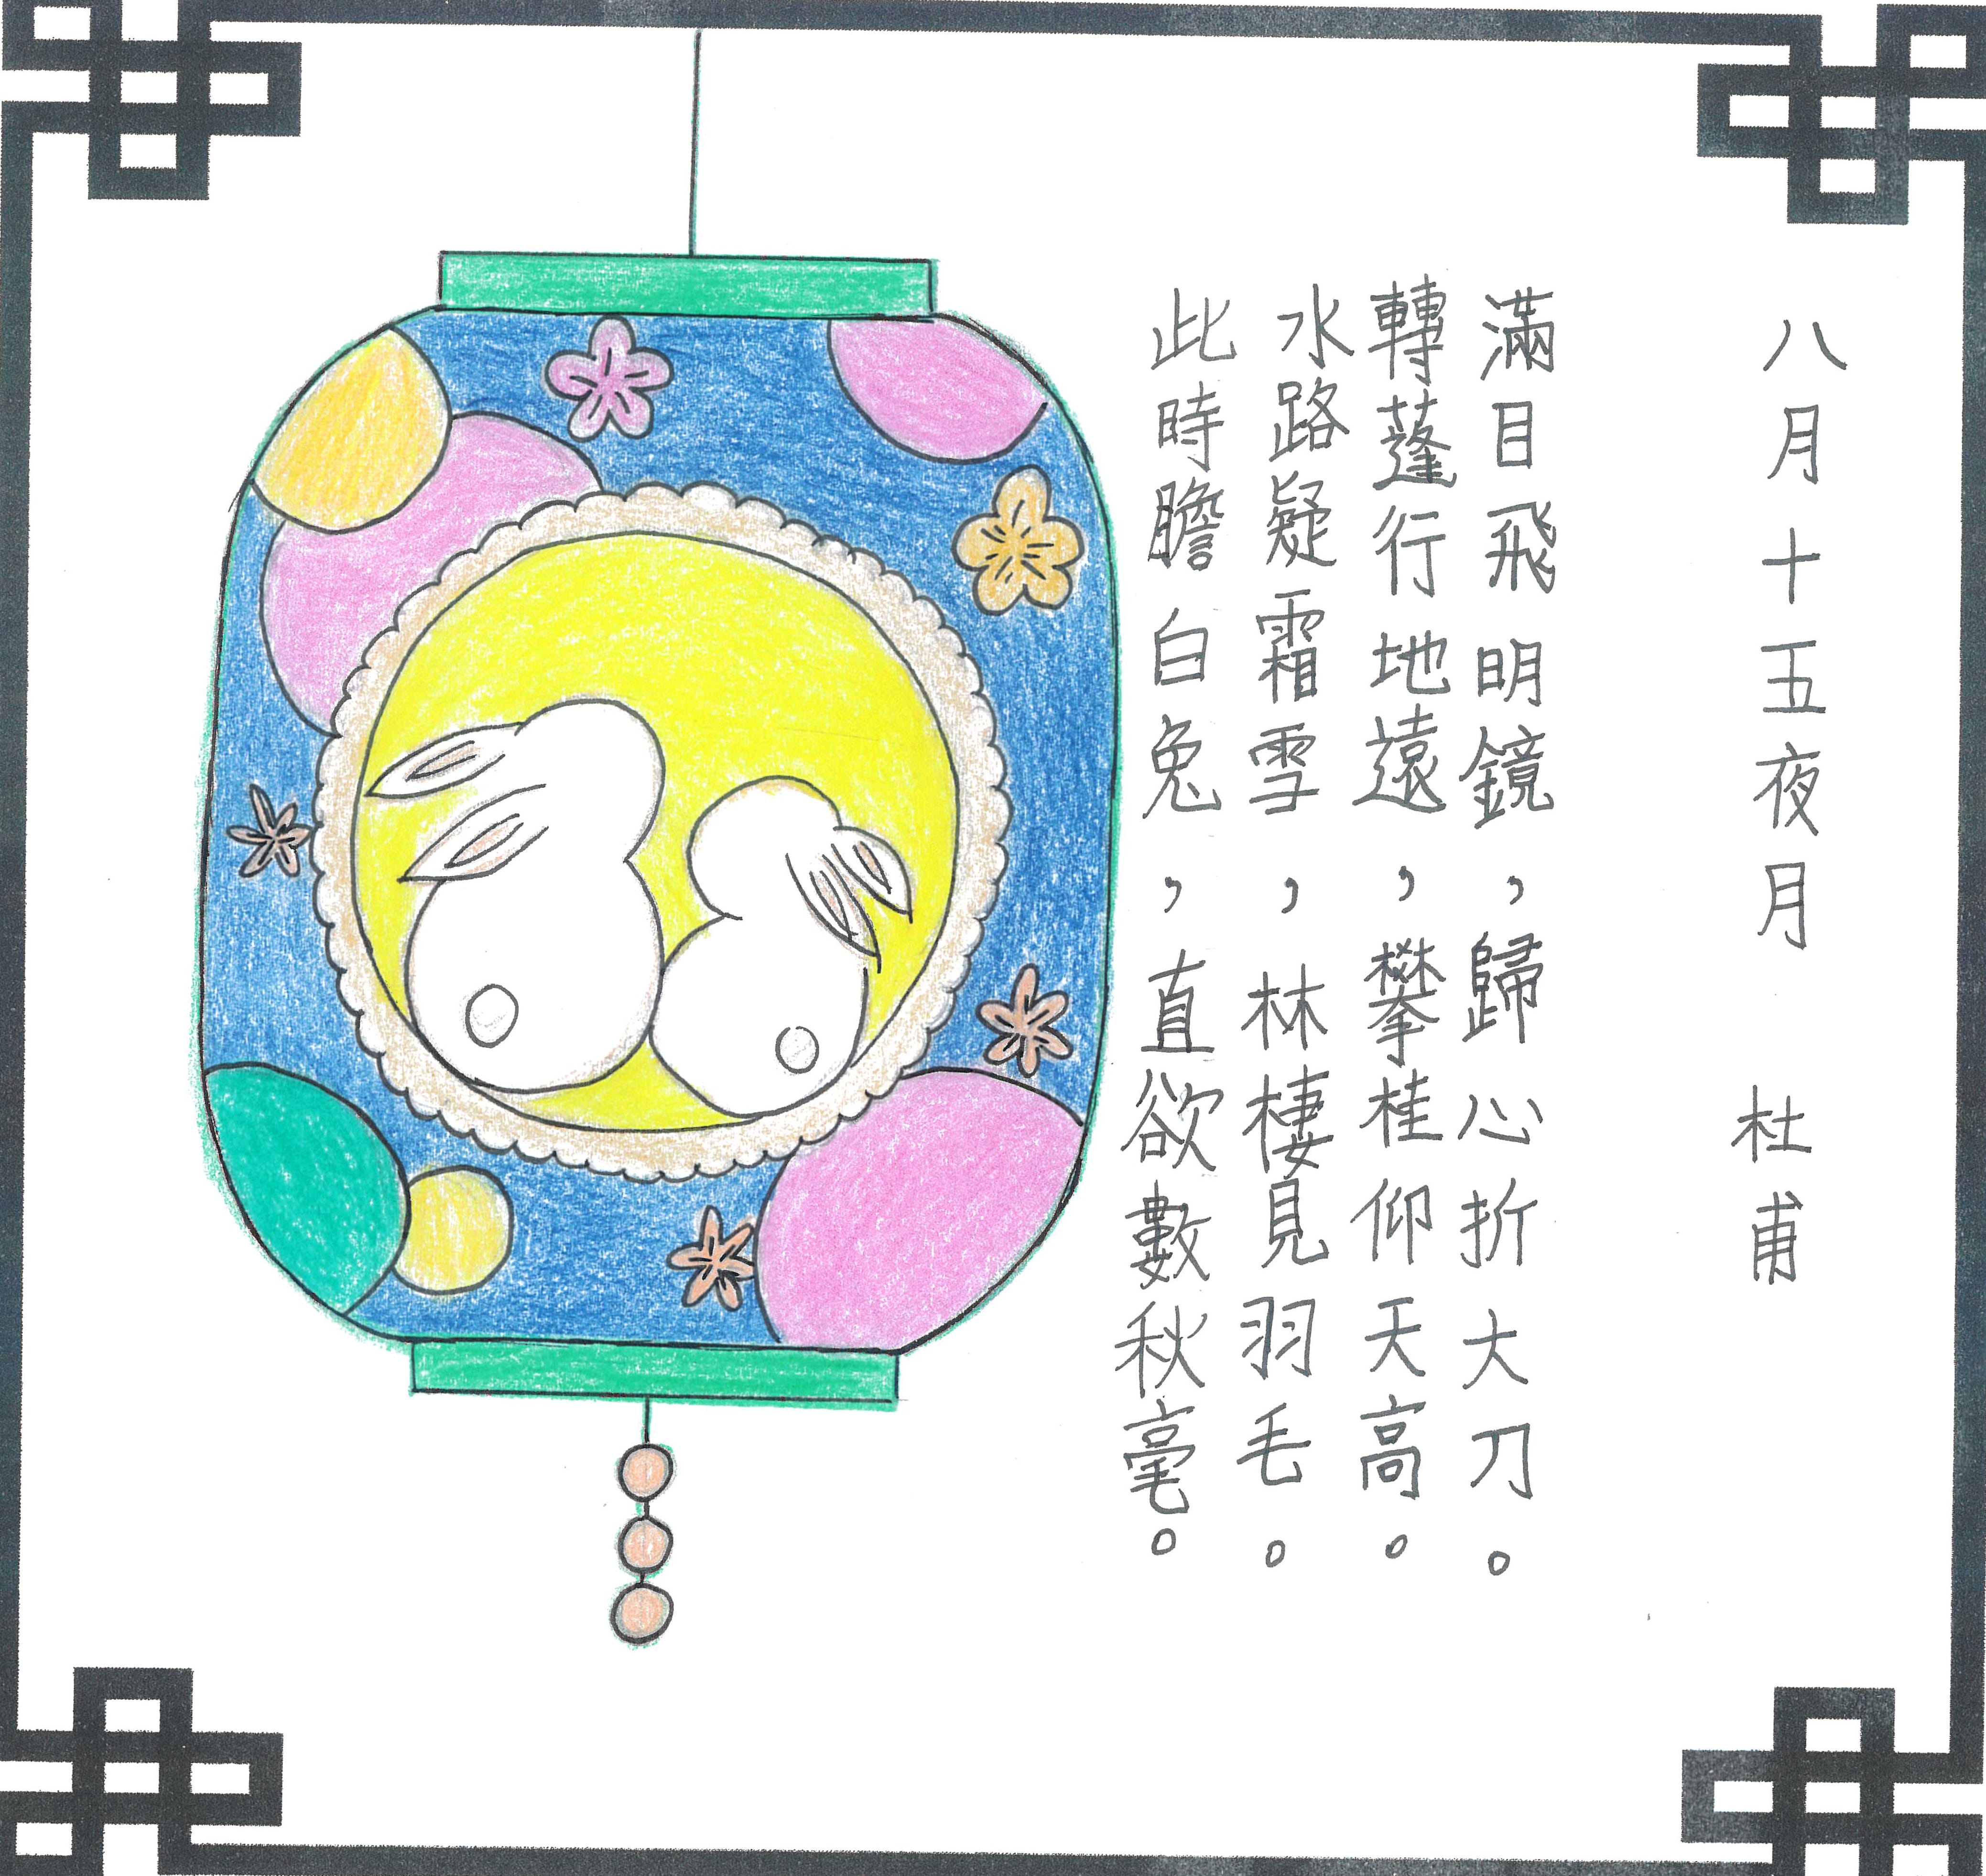 八月十五夜月 杜甫
滿目飛明鏡，歸心折大刀。
轉蓬行地遠，攀桂仰天高。
水路疑霜雪，林棲見羽毛。
此時膽白兔，直欲數秋毫。